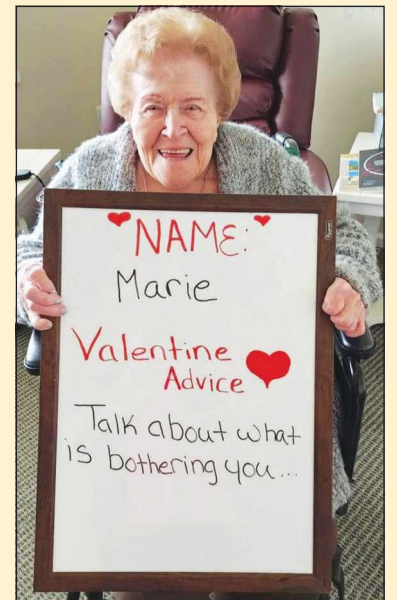 NAME:
Marie
Valentine
Advice
Talk about what
is bothering you...